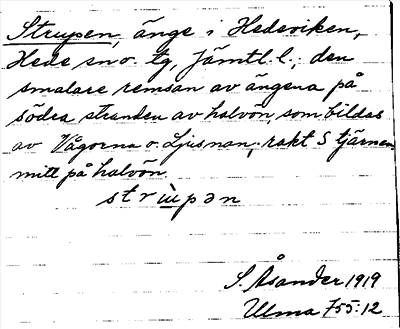 Strupen, änge i Hedeviken,
Hede sn o. tg, Jämtl. l.; den
smalare remsan av ängena på
södra stranden av halvön, som bildas
av Vågorna o. Ljusnan; rakt S tjärnen
mitt på halvön.
strùpən
S. Åsander 1919
Ulma 755:12